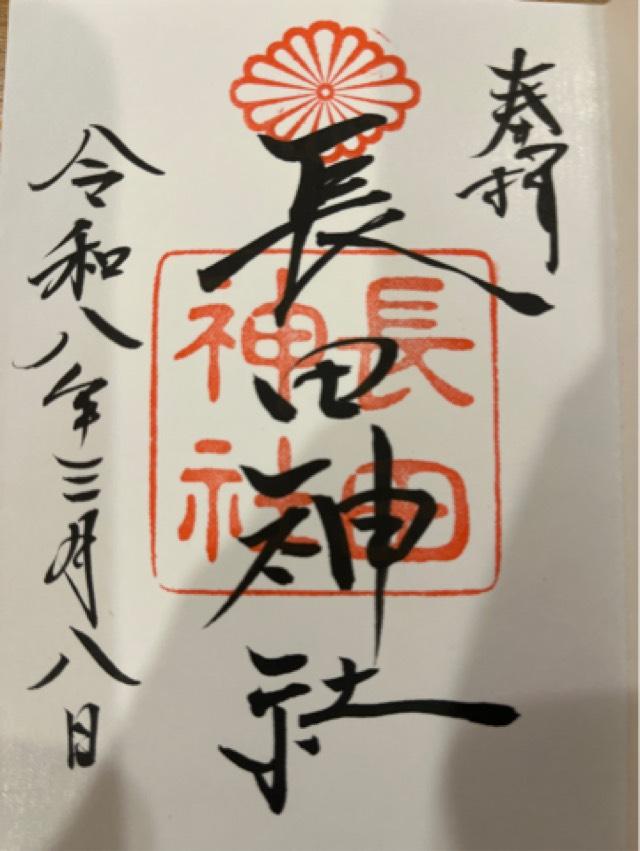 奉拝
長田神社
長田
神社
令和八年三月八日